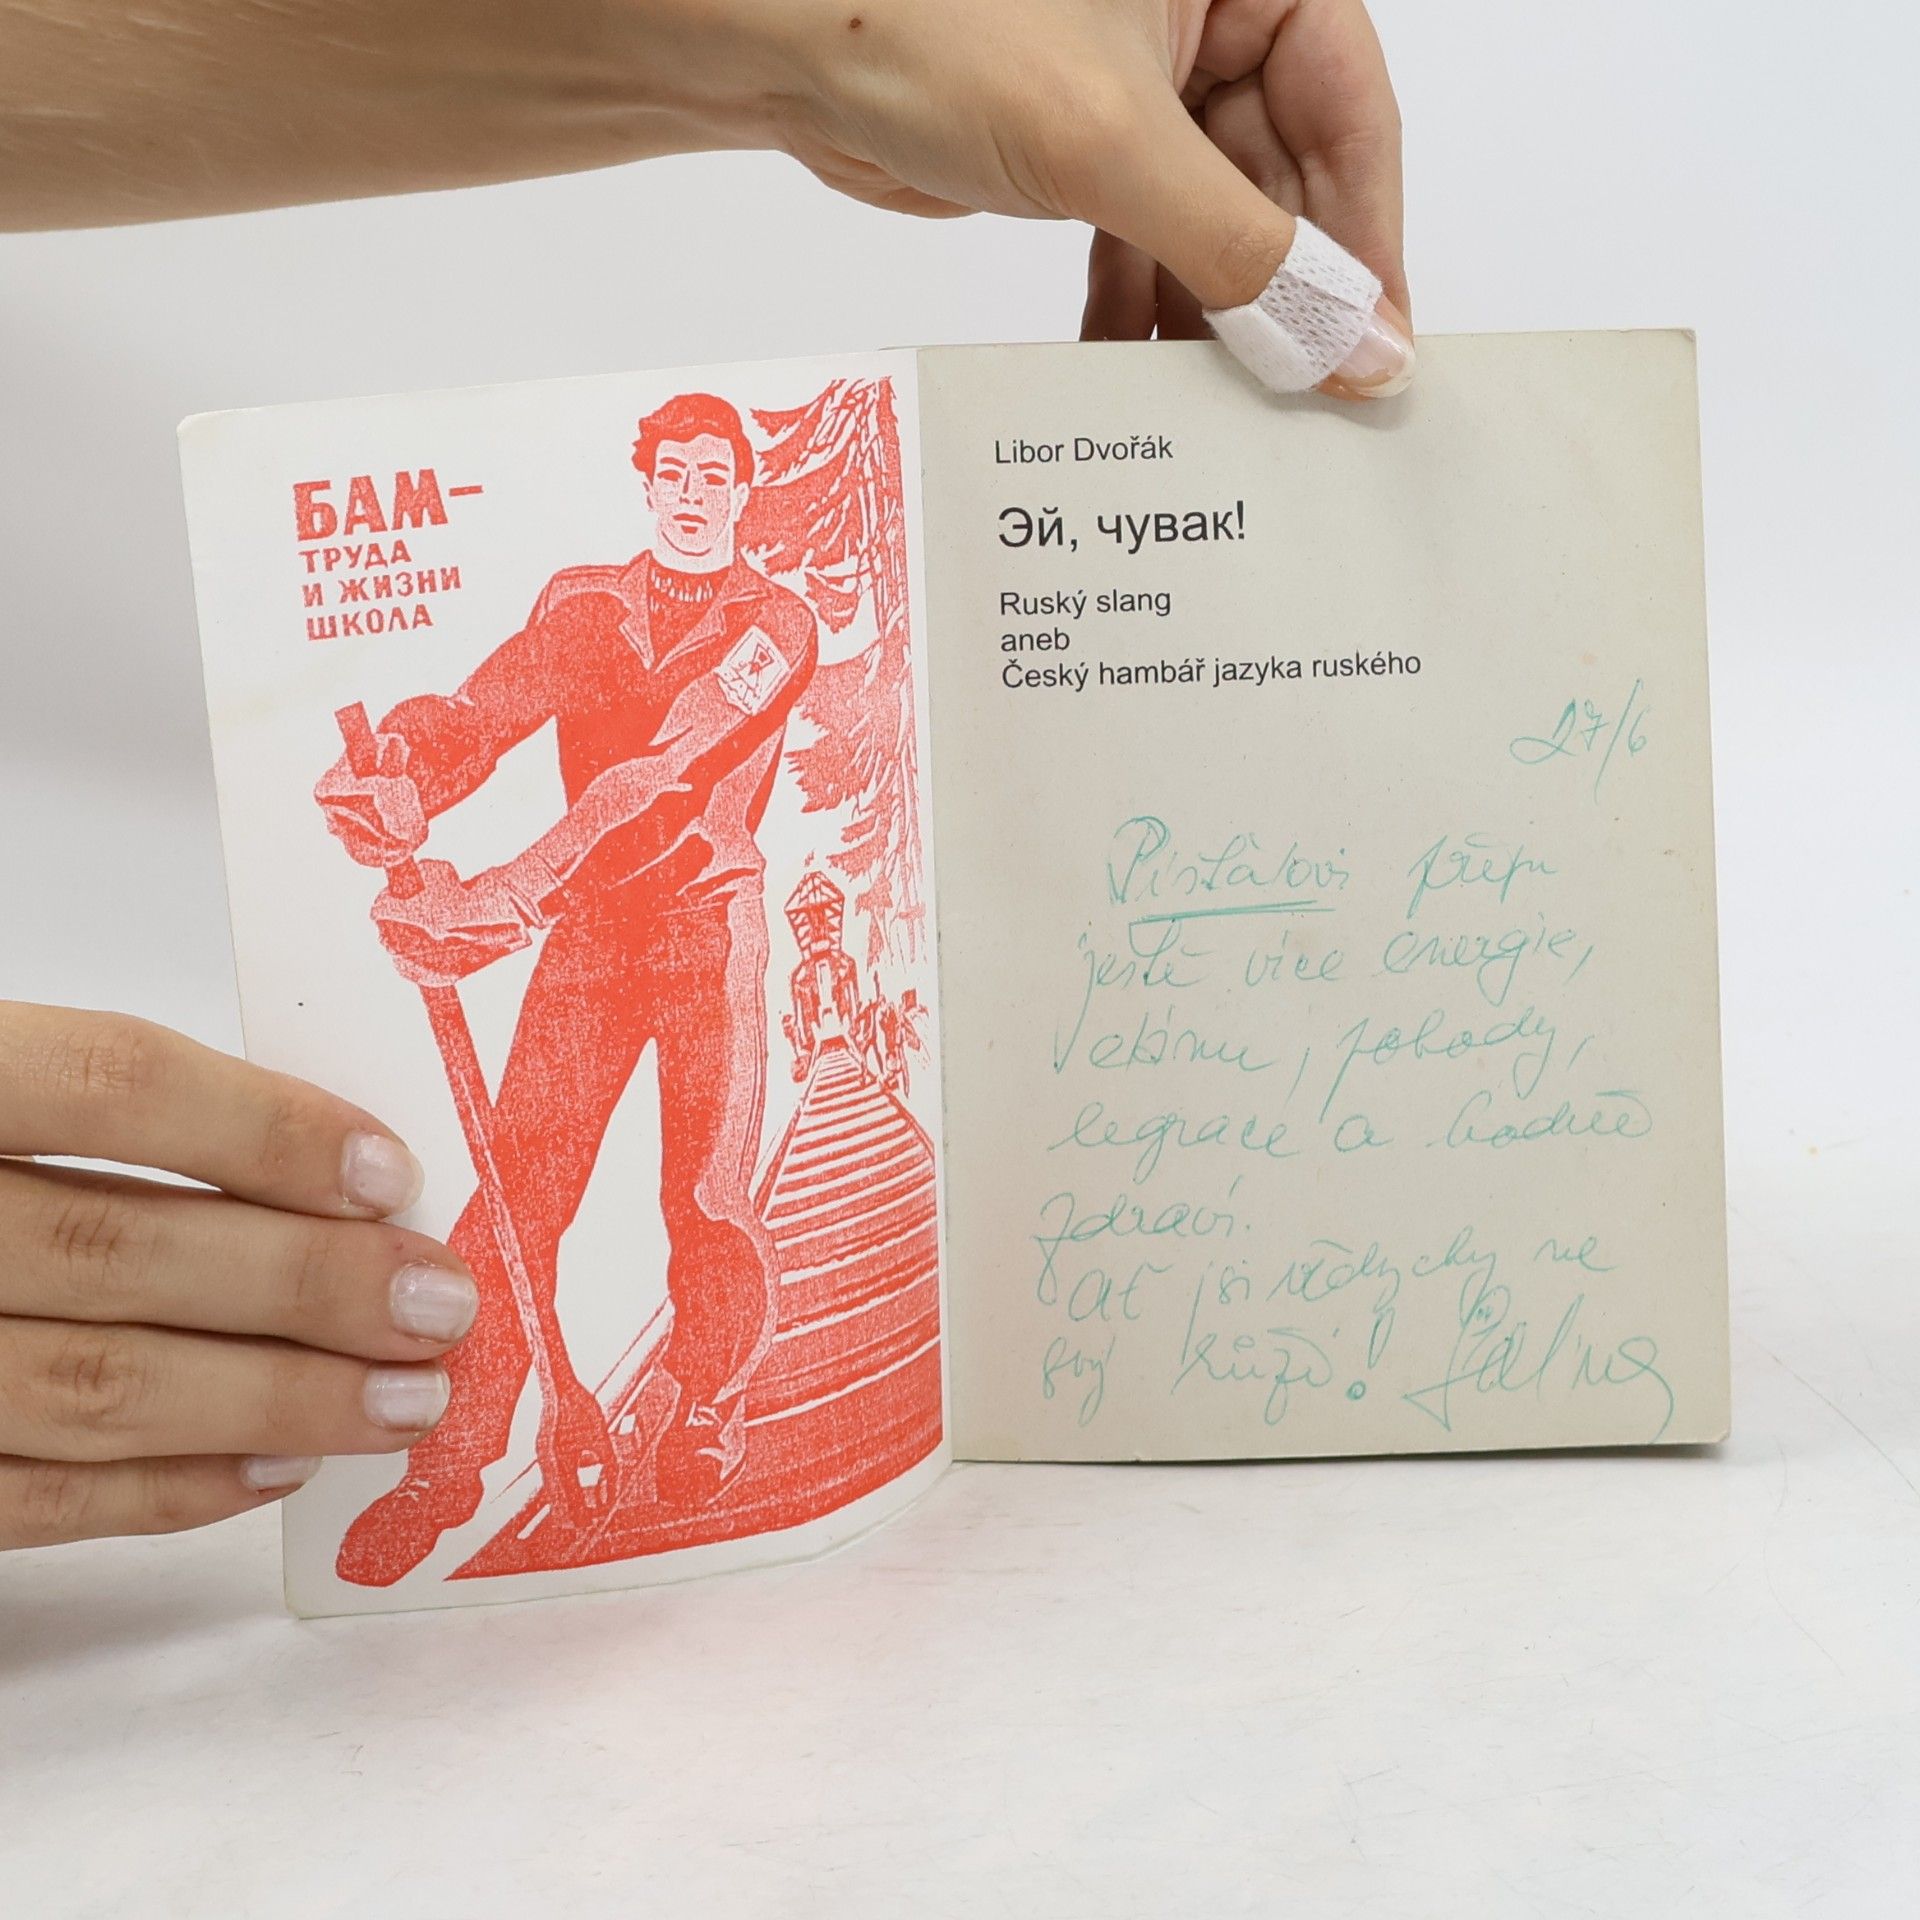 БАМ–
ТРУДА
И ЖИЗНИ
ШКОЛА
Libor Dvořák
Эй, чувак!
Ruský slang
aneb
Český hambář jazyka ruského
27/6
Pišťálovi přeju
ještě více energie,
elánu, pohody,
legrace a hodně
zdraví.
Ať jsi vždycky ve
svý kůži!